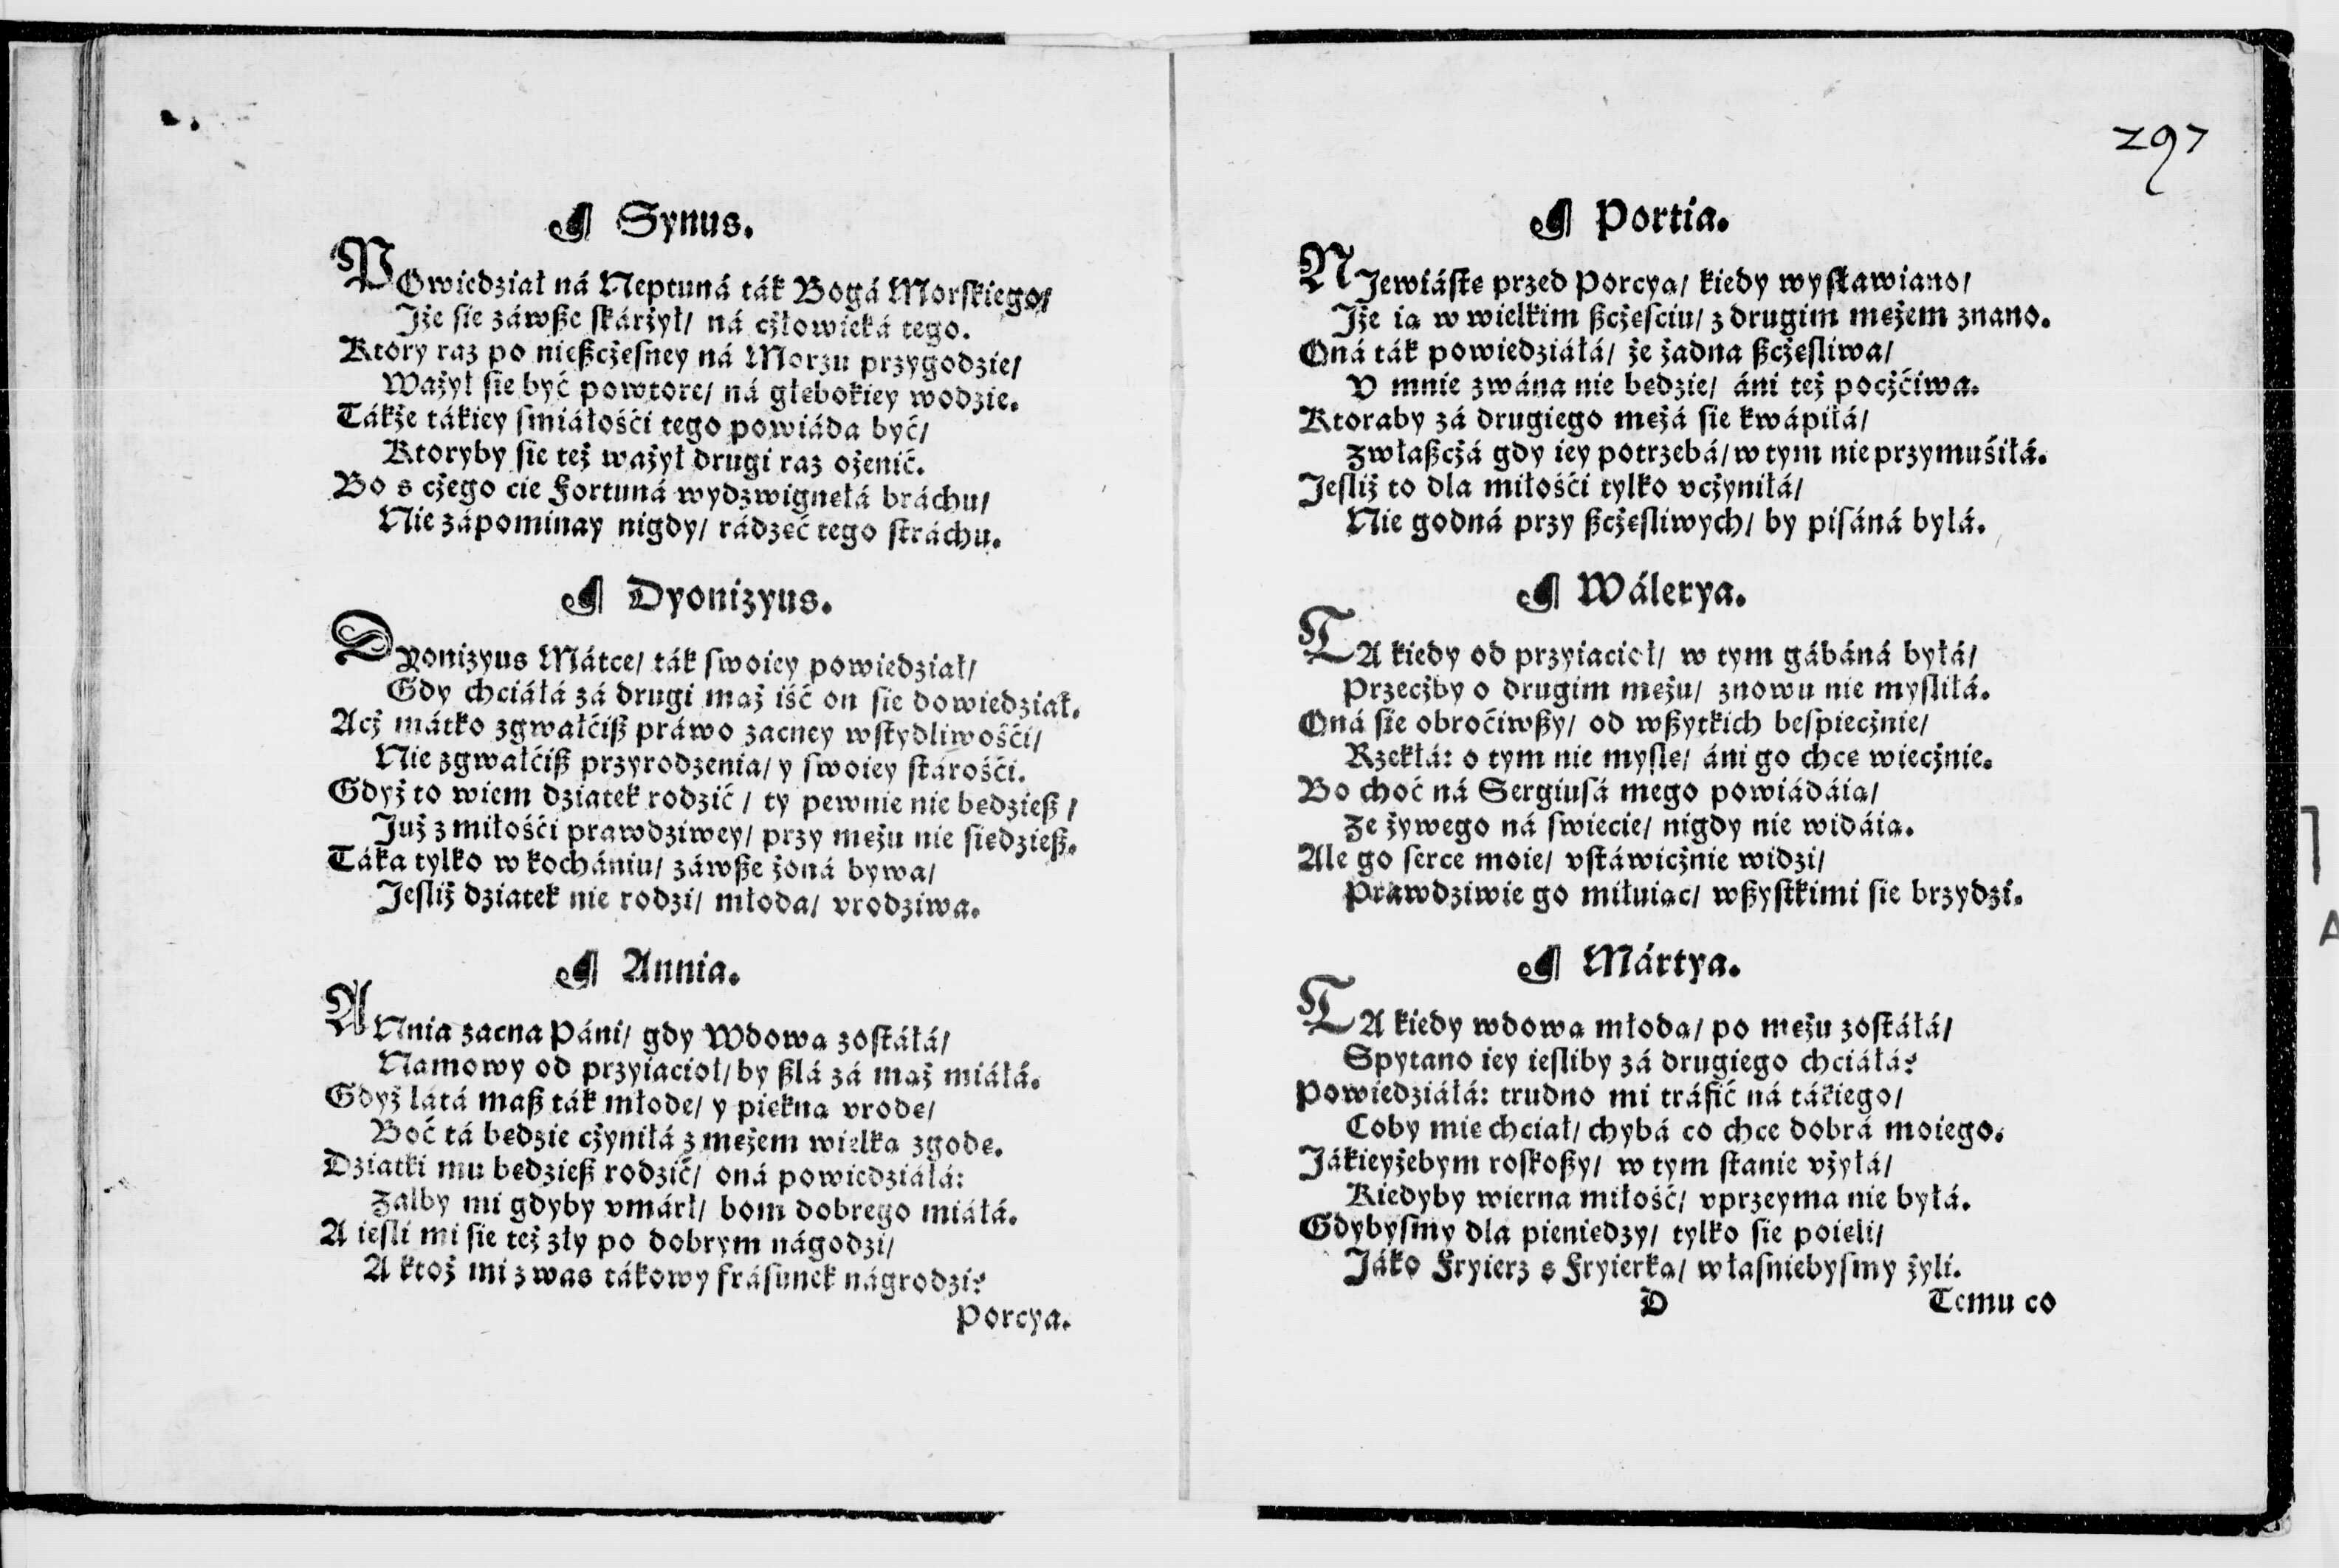 ¶ Synus.
POwiedział ná Neptuná ták Bogá Morſkiego/
Jże ſie záwße ſkárżył/ ná cżłowieká tego.
Ktory raz po nießcżeſney ná Morzu przygodzie/
Ważył ſie być powtore/ ná głebokiey wodzie.
Tákże tákiey ſmiáłośći tego powiáda być/
Ktoryby ſie też ważył drugi raz ożenić.
Bo s cżego cie Fortuná wydzwignełá bráchu/
Nie zápominay nigdy/ rádzęć tego ſtráchu.
¶ Dyonizyus.
DYonizyus Mátce/ ták ſwoiey powiedział/
Gdy chciáłá zá drugi maż iść on ſie dowiedział.
Acż mátko zgwałćiß práwo zacney wſtydliwośći/
Nie zgwałćiß przyrodzenia/ y ſwoiey ſtárośći.
Gdyż to wiem dziatek rodzić/ ty pewnie nie bedzieß/
Już z miłośći prawdziwey/ przy meżu nie siedzieß.
Táka tylko w kochániu/ záwße żoná bywa/
Jeſliż dziatek nie rodzi/ młoda/ vrodziwa.
¶ Annia.
ANnia zacna Páni/ gdy Wdowa zoſtáłá/
Namowy od przyiacioł/ by ßlá zá maż miáłá.
Gdyż látá maß ták młode/ y piekna vrode/
Boć tá bedzie cżyniłá z meżem wielka zgode.
Dziatki mu bedzieß rodzić/ oná powiedziáłá:
Zalby mi gdyby vmárł/ bom dobrego miáłá.
A ieſli mi ſie też zły po dobrym nágodzi/
A ktoż mi z was tákowy fráſunek nágrodzi?
Porcya.
297
¶ Portia.
NJewiáſte przed Porcya/ kiedy wyſławiano/
Jże ia w wielkim ßcżeſciu/ z drugim meżem znano.
Oná ták powiedziáłá/ że żadna ßcżeſliwa/
V mnie zwána nie bedzie/ áni też pocżćiwa.
Ktoraby zá drugiego meżá ſie kwápiłá/
Zwłaßcżá gdy iey potrzebá/ w tym nie przymuśiłá.
Jeſliż to dla miłośći tylko vcżyniłá/
Nie godná przy ßcżeſliwych/ by piſáná byłá.
¶ Wálerya.
TA kiedy od przyiacioł/ w tym gábáná byłá/
Przecżby o drugim meżu/ znowu nie myſliłá.
Oná ſie obroćiwßy/ od wßytkich beſpiecżnie/
Rzekłá: o tym nie myſle/ áni go chce wiecżnie.
Bo choć ná Sergiuſá mego powiádáia/
Ze żywego ná ſwiecie/ nigdy nie widáia.
Ale go ſerce moie/ vſtáwicżnie widzi/
Prawdziwie go miłuiac/ wßyſtkimi ſie brzydzi.
¶ Mártya.
TA kiedy wdowa młoda/ po meżu zoſtáłá/
Spytano iey ieſliby zá drugiego chciáłá?
Powiedziáłá: trudno mi tráfić ná tákiego/
Coby mie chciał/ chybá co chce dobrá moiego.
Jákieyżebym roſkoßy/ w tym ſtanie vżyłá/
Kiedyby wierna miłość/ vprzeyma nie byłá.
Gdybyſmy dla pieniedzy/ tylko ſie poieli/
Jáko Fryierz s Fryierka/ właſniebyſmy żyli.
D Temu co